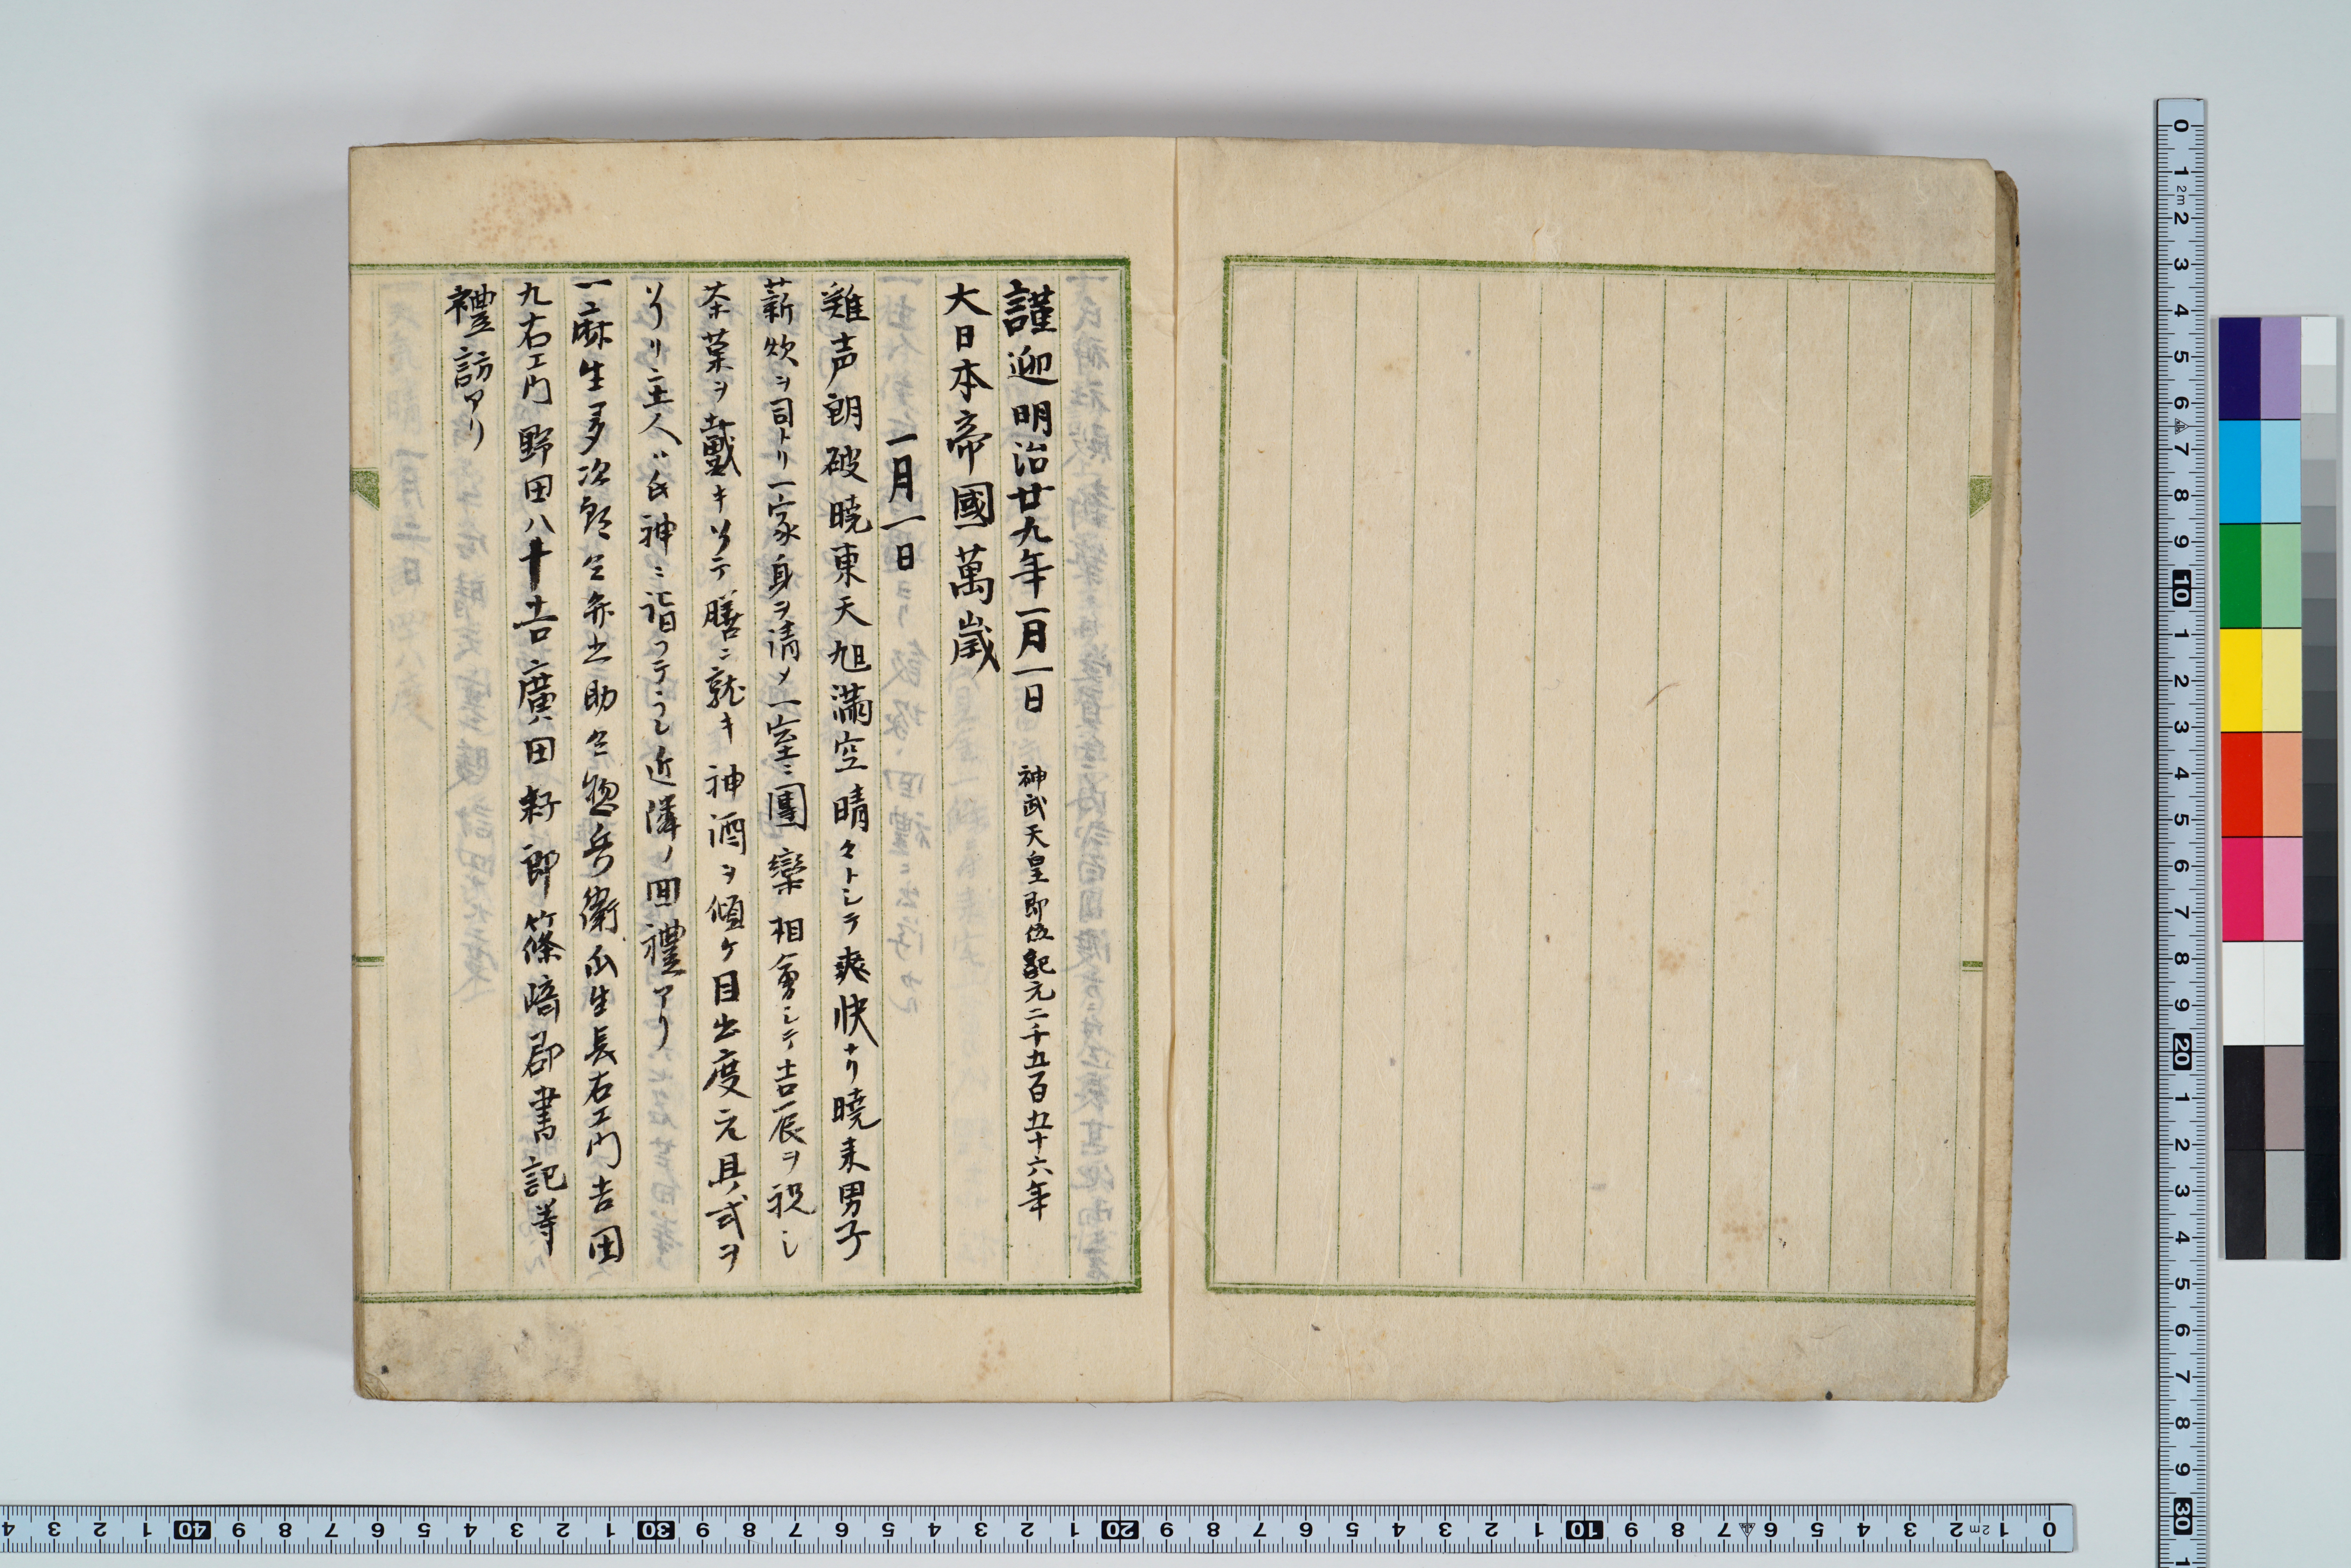 謹迎明治廿九年一月一日 神武天皇即位紀元二千五百五十六年
大日本帝國萬歳
一月一日
雞声朗破暁東天旭滿空晴々トシテ爽快ナリ暁来男子
薪炊ヲ司トリ一家身ヲ清メ一室ニ團欒相會シテ吉辰ヲ祝シ
茶菓ヲ戴キ 膳ニ就キ神酒ヲ傾ケ目出度元具式ヲ
リ主人ハ氏神ニ詣 近隣ノ回禮アリ
一麻生多次郎仝弥之助仝惣兵衛瓜生長右エ門吉田
九右エ門野田八十吉廣田 郎篠﨑郡書記等
禮訪アリ